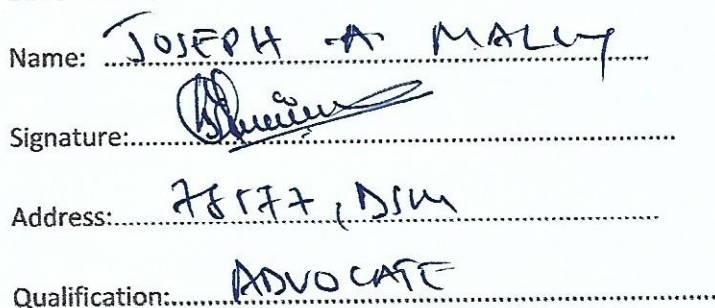 Name: JOSEPH A MALLY
Signature:
Address: 78577, DSM
Qualification: ADVOCATE